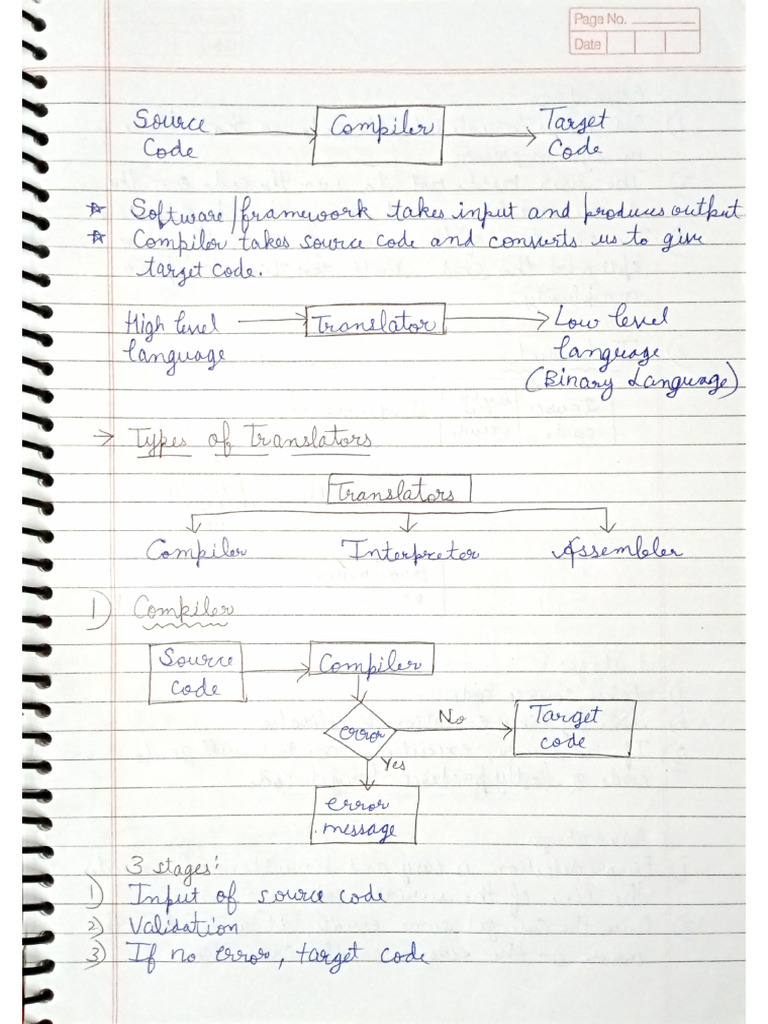 Page No.
Date
Source Code
Compiler
Target Code
☆ Software/framework takes input and produces output
☆ Compiler takes source code and converts us to give
target code.
High level language
Translator
Low level language
(Binary Language)
→ Types of Translators
Translators
Compiler Interpreter Assembler
1) Compiler
Source code
Compiler
error
No
Target code
Yes
error message
3 stages:
1) Input of source code
2) Validation
3) If no error, target code